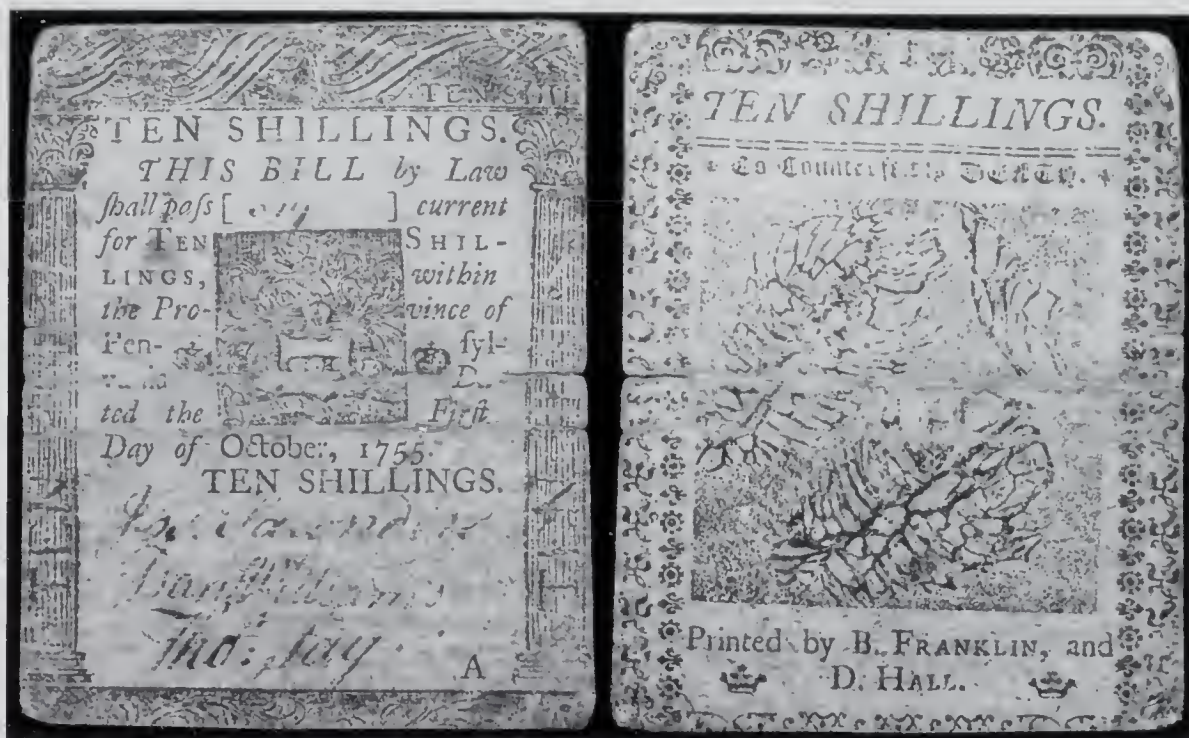 TEN SHILLINGS.
THIS BILL by Law
ſhall paſs [ ] current
for TEN SHIL-
LINGS, within
the Pro- vince of
Pen- ſyl-
ted the Firſt
Day of October, 1755.
TEN SHILLINGS.
A
TEN SHILLINGS.
To Counterfeit is DEATH.
Printed by B. FRANKLIN, and
D. HALL.